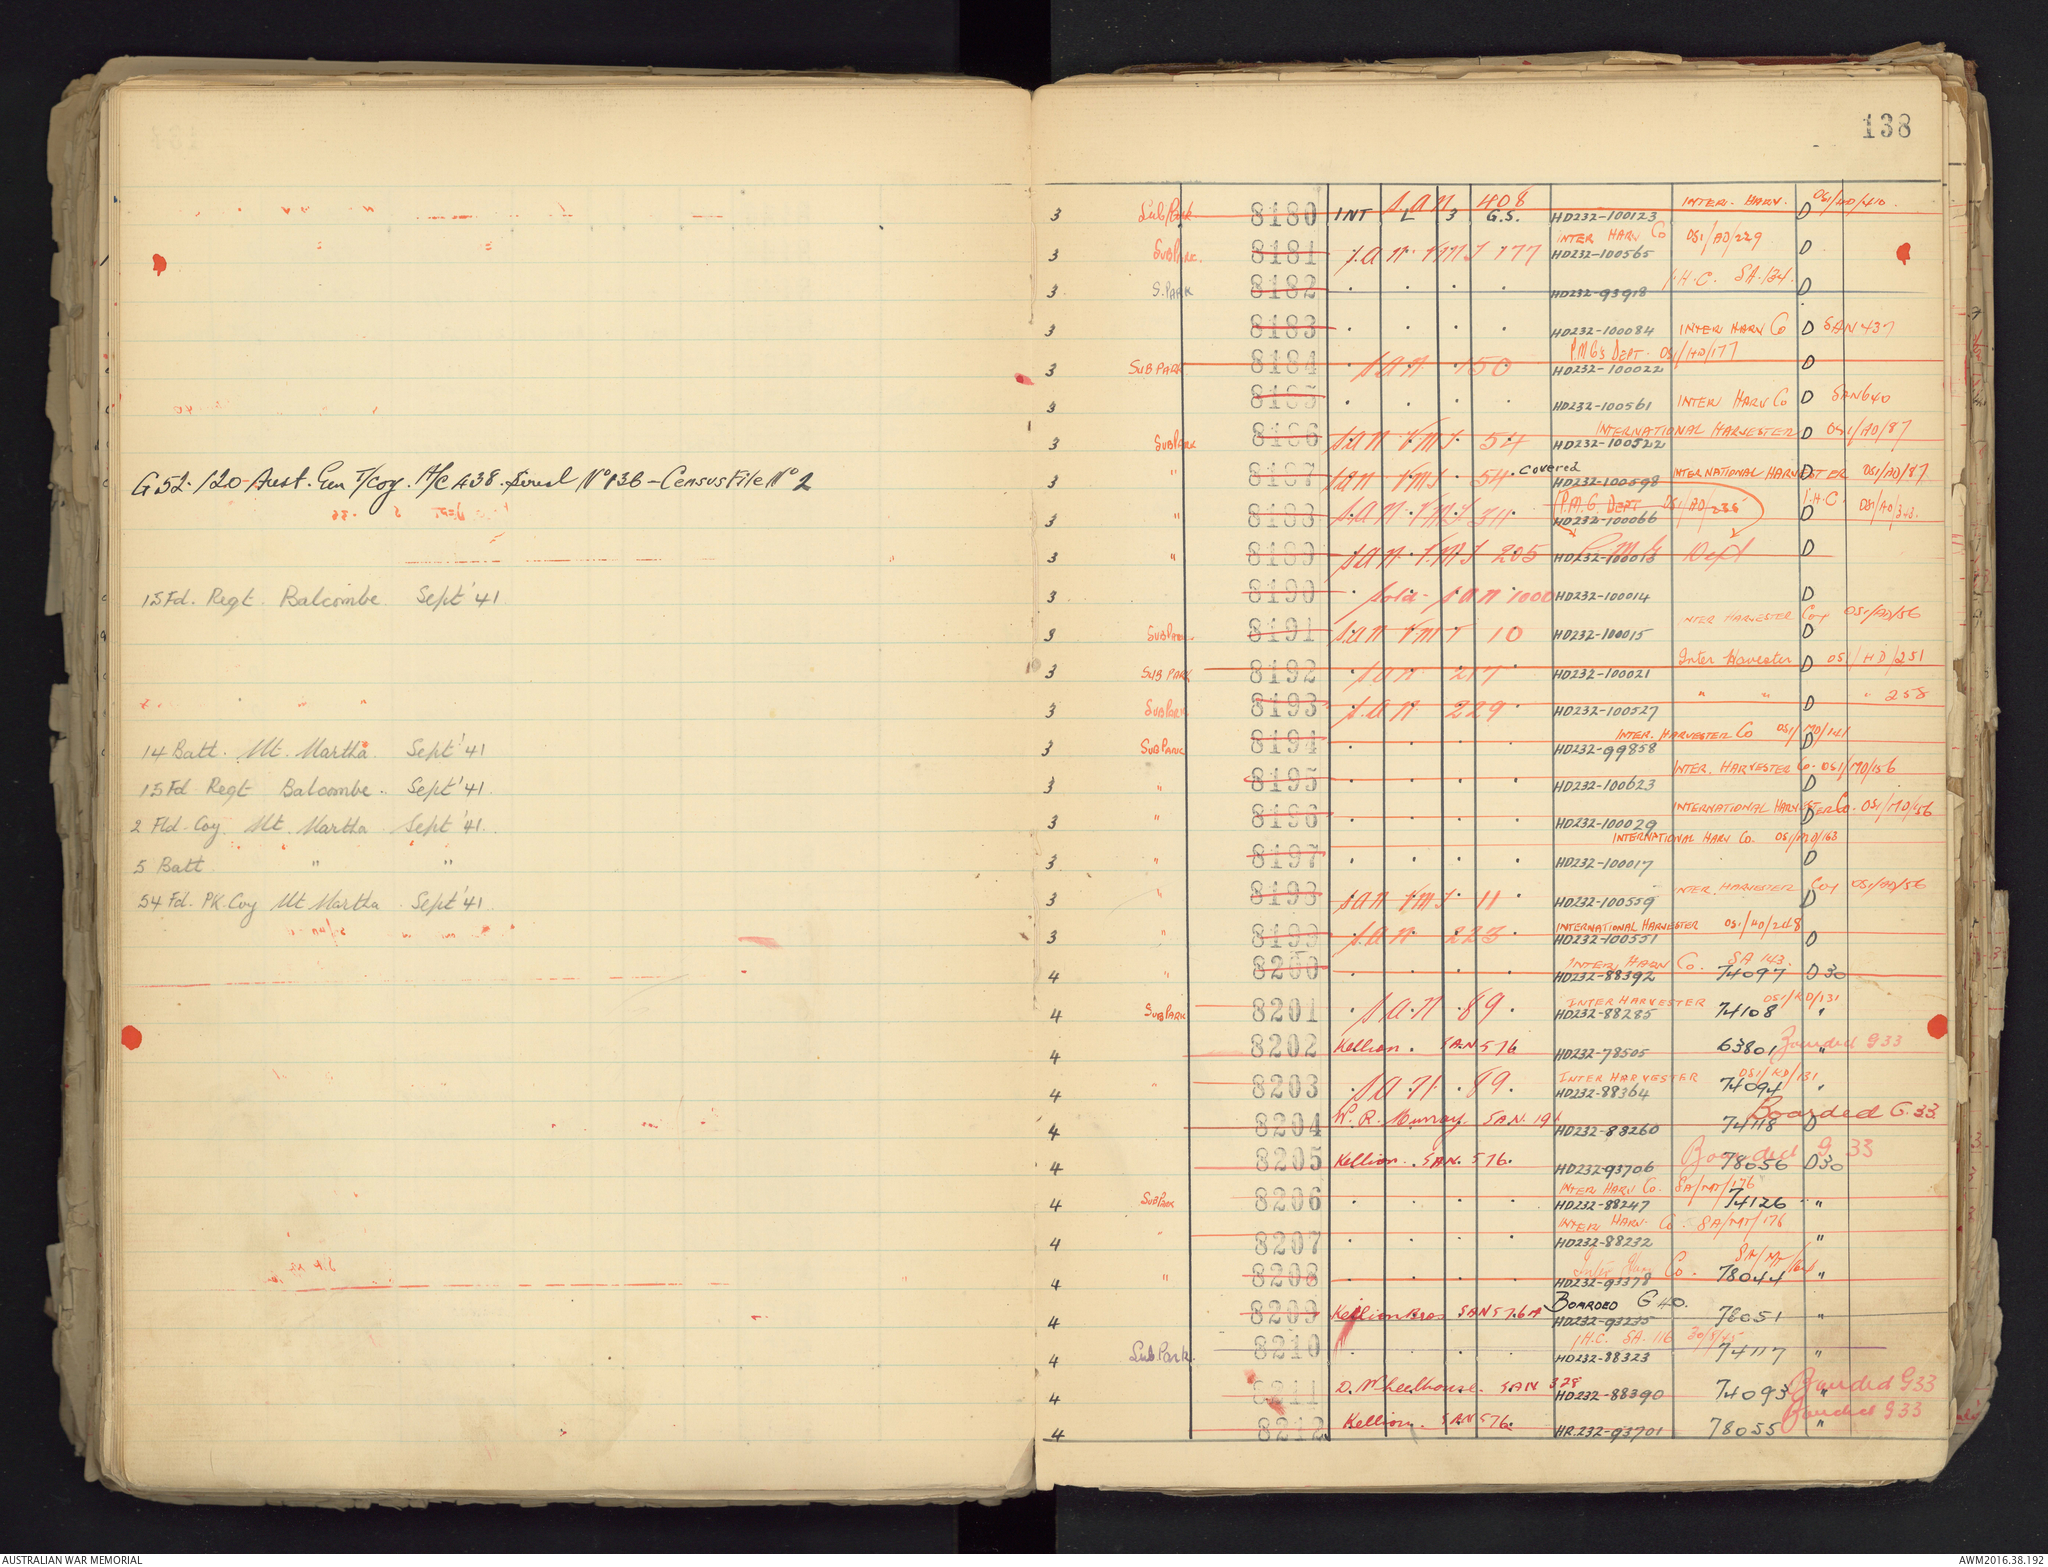 G52. 120 Aust. Gen T/Coy. A/C 438. Serial No 136 - Census File No 2
15 Fd. Regt. Balcombe Sept '41
14 Batt. Mt. Martha. Sept '41
15 Fd. Regt Balcombe. Sept '41.
2 Fld. Coy. Mt. Martha Sept '41.
5 Batt " "
54 Fd. PK. Coy Mt Martha. Sept '41
138
3 Sub Park 8180 INT L 3 G.S. SAN 408 HD232-100123 INTER. HARV. D
3 SUB PARK. 8181 SAN VMS 177 INTER HARV Co HD232-100565 D
3 S. PARK 8182 . . . . HD232-93918 I.H.C. SA.134. D
3 8183 . . . . HD232-100084 INTER HARV Co D SAN 437
3 SUB PARK 8184 SAN 150 P.M.G's DEPT. HD232-100022 D
3 8185 . . . . HD232-100561 INTER HARV Co D SAN 640
3 SUB PARK 8186 SAN VMS 54 INTERNATIONAL HARVESTER HD232-100522 D
3 " 8187 SAN VMS 54. covered HD232-100598 INTERNATIONAL HARVESTER D
3 " 8188 SAN VMS 311 P.M.G. DEPT HD232-100066 I.H.C. D
3 " 8189 SAN VMS 205 HD232-100013 P.M.G Dept D
3 8190 Sold - SAN 1000 HD232-100014 D
3 SUB PARK 8191 SAN VMS 10 HD232-100015 INTER HARVESTER Coy D
3 SUB PARK 8192 SAN 217 HD232-100021 Inter Harvester D OS1/HD/251
3 SUB PARK 8193 SAN 229 HD232-100527 " " D " 258
3 SUB PARK 8194 . . . . INTER. HARVESTER Co HD232-99858 D
3 " 8195 . . . . HD232-100623 INTER. HARVESTER Co. D
3 " 8196 . . . . HD232-100029 INTERNATIONAL HARVESTER Co. D
3 " 8197 . . . . INTERNATIONAL HARV Co. HD232-100017 D
3 " 8198 SAN VMS 11 HD232-100559 INTER. HARVESTER Coy D
3 " 8199 SAN 223 INTERNATIONAL HARVESTER HD232-100551 D
4 " 8200 . . . . INTER, HARV Co. SA 143. HD232-88392 74097 D30
4 SUB PARK 8201 SAN 89 INTER HARVESTER HD232-88285 74108 "
4 8202 Kellion. SAN 576 HD232-78505 63801 " Boarded G33
4 " 8203 SAN 89. INTER HARVESTER HD232-88364 74094 "
4 8204 W. R. Murray. SAN. HD232-88260 74118 D Boarded G.33
4 8205 Kellion. SAN. 576. HD232-93706 78056 D30 Boarded G 33
4 SUB PARK 8206 . . . . INTER HARV Co. HD232-88247 74126 "
4 " 8207 . . . . INTER HARV. Co. SA/MT/176 HD232-88232 "
4 " 8208 . . . . Inter Harv Co. HD232-93378 78044 "
4 8209 Kellion Bros SAN 576A BOARDED G 40. HD232-93235 78051 "
4 Sub Park. 8210 . . . . I.H.C. SA. 116 30/8/45 HD232-88323 74117 "
4 8211 D. Wheelhouse. SAN 328 HD232-88390 74093 " Boarded G33
4 8212 Kellion. SAN 576. HR.232-93701 78055 " Boarded G33
AUSTRALIAN WAR MEMORIAL
AWM2016.38.192